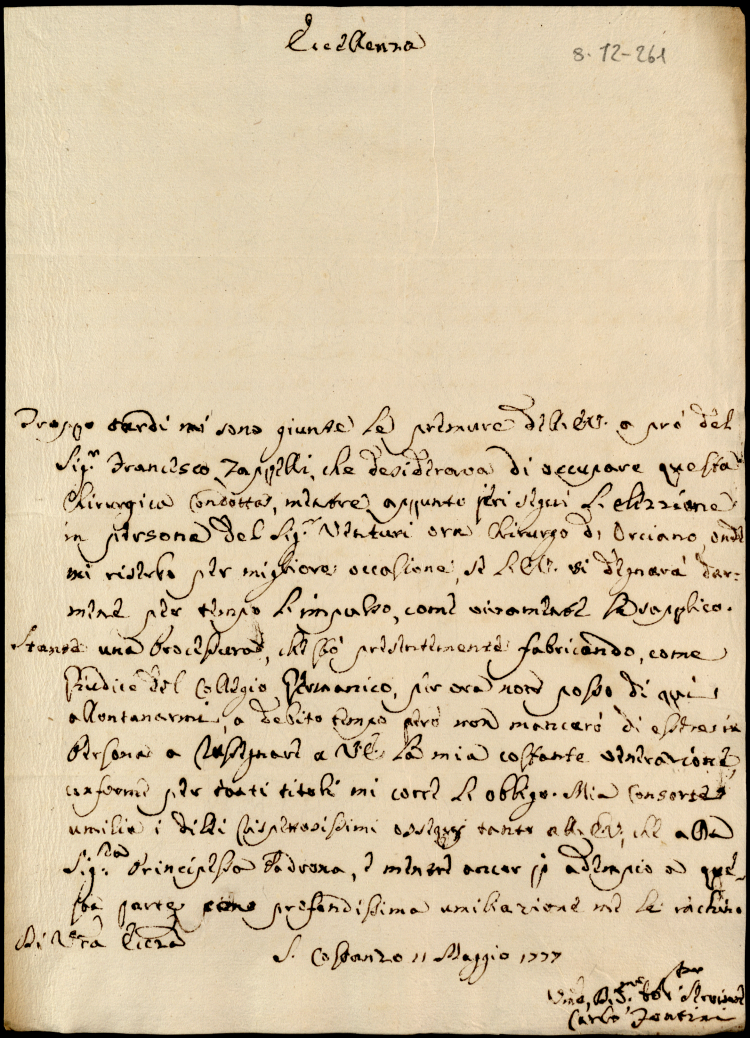 Eccellenza
8-12-261
Troppo tardi mi sono giunte le premure dell'E.V. a pró del
Sig.r Francesco Zappelli, che desiderava di occupare questa
Chirurgica Condotta, mentre appunto jeri seguí l'elezzione
in persona del Sig.r Venturi ora Chirurgo di Orciano, onde
mi riserbo per migliore occasione, se l'E.V. si degnará dar-
mene per tempo l'impulso, come vivamente la supplico.
Stante una Processura, che stó presentemente fabricando, come
Giudice del Collegio Germanico, per ora non posso di qui
allontanarmi, a debito tempo peró non mancaró di essere in
Persona a rassegnare a V.E. la mia costante venerazione,
conforme per tanti titoli mi corre l'obbligo. Mia Consorte
umilia i di lei rispettosissimi ossequj tanto all'E.V., che alla
Sig.ra Principessa Padrona, e mentre ancor io adempio a que-
sta parte profondissima umiliazione me le inchino
Di Vra Eccza
S. Costanzo 11 Maggio 1777
Carlo